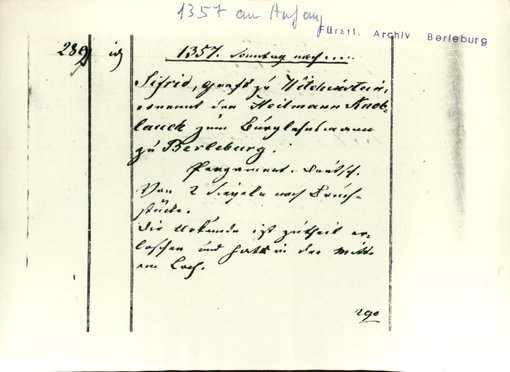 1357 am Anfang
Fürstl. Archiv Berleburg
289
1357. Sonntag nach....
Sifrid, Graf zu Wittgenstein,
ernennt den Heilmann Knob-
lauch zum Burglehnmann
zu Berleburg.
Pergament. Deutsch.
Von 2 Siegeln noch Bruch-
stücke.
Die Urkunde ist zutheil er-
loschen und hat in der Mitte
ein Loch.
290